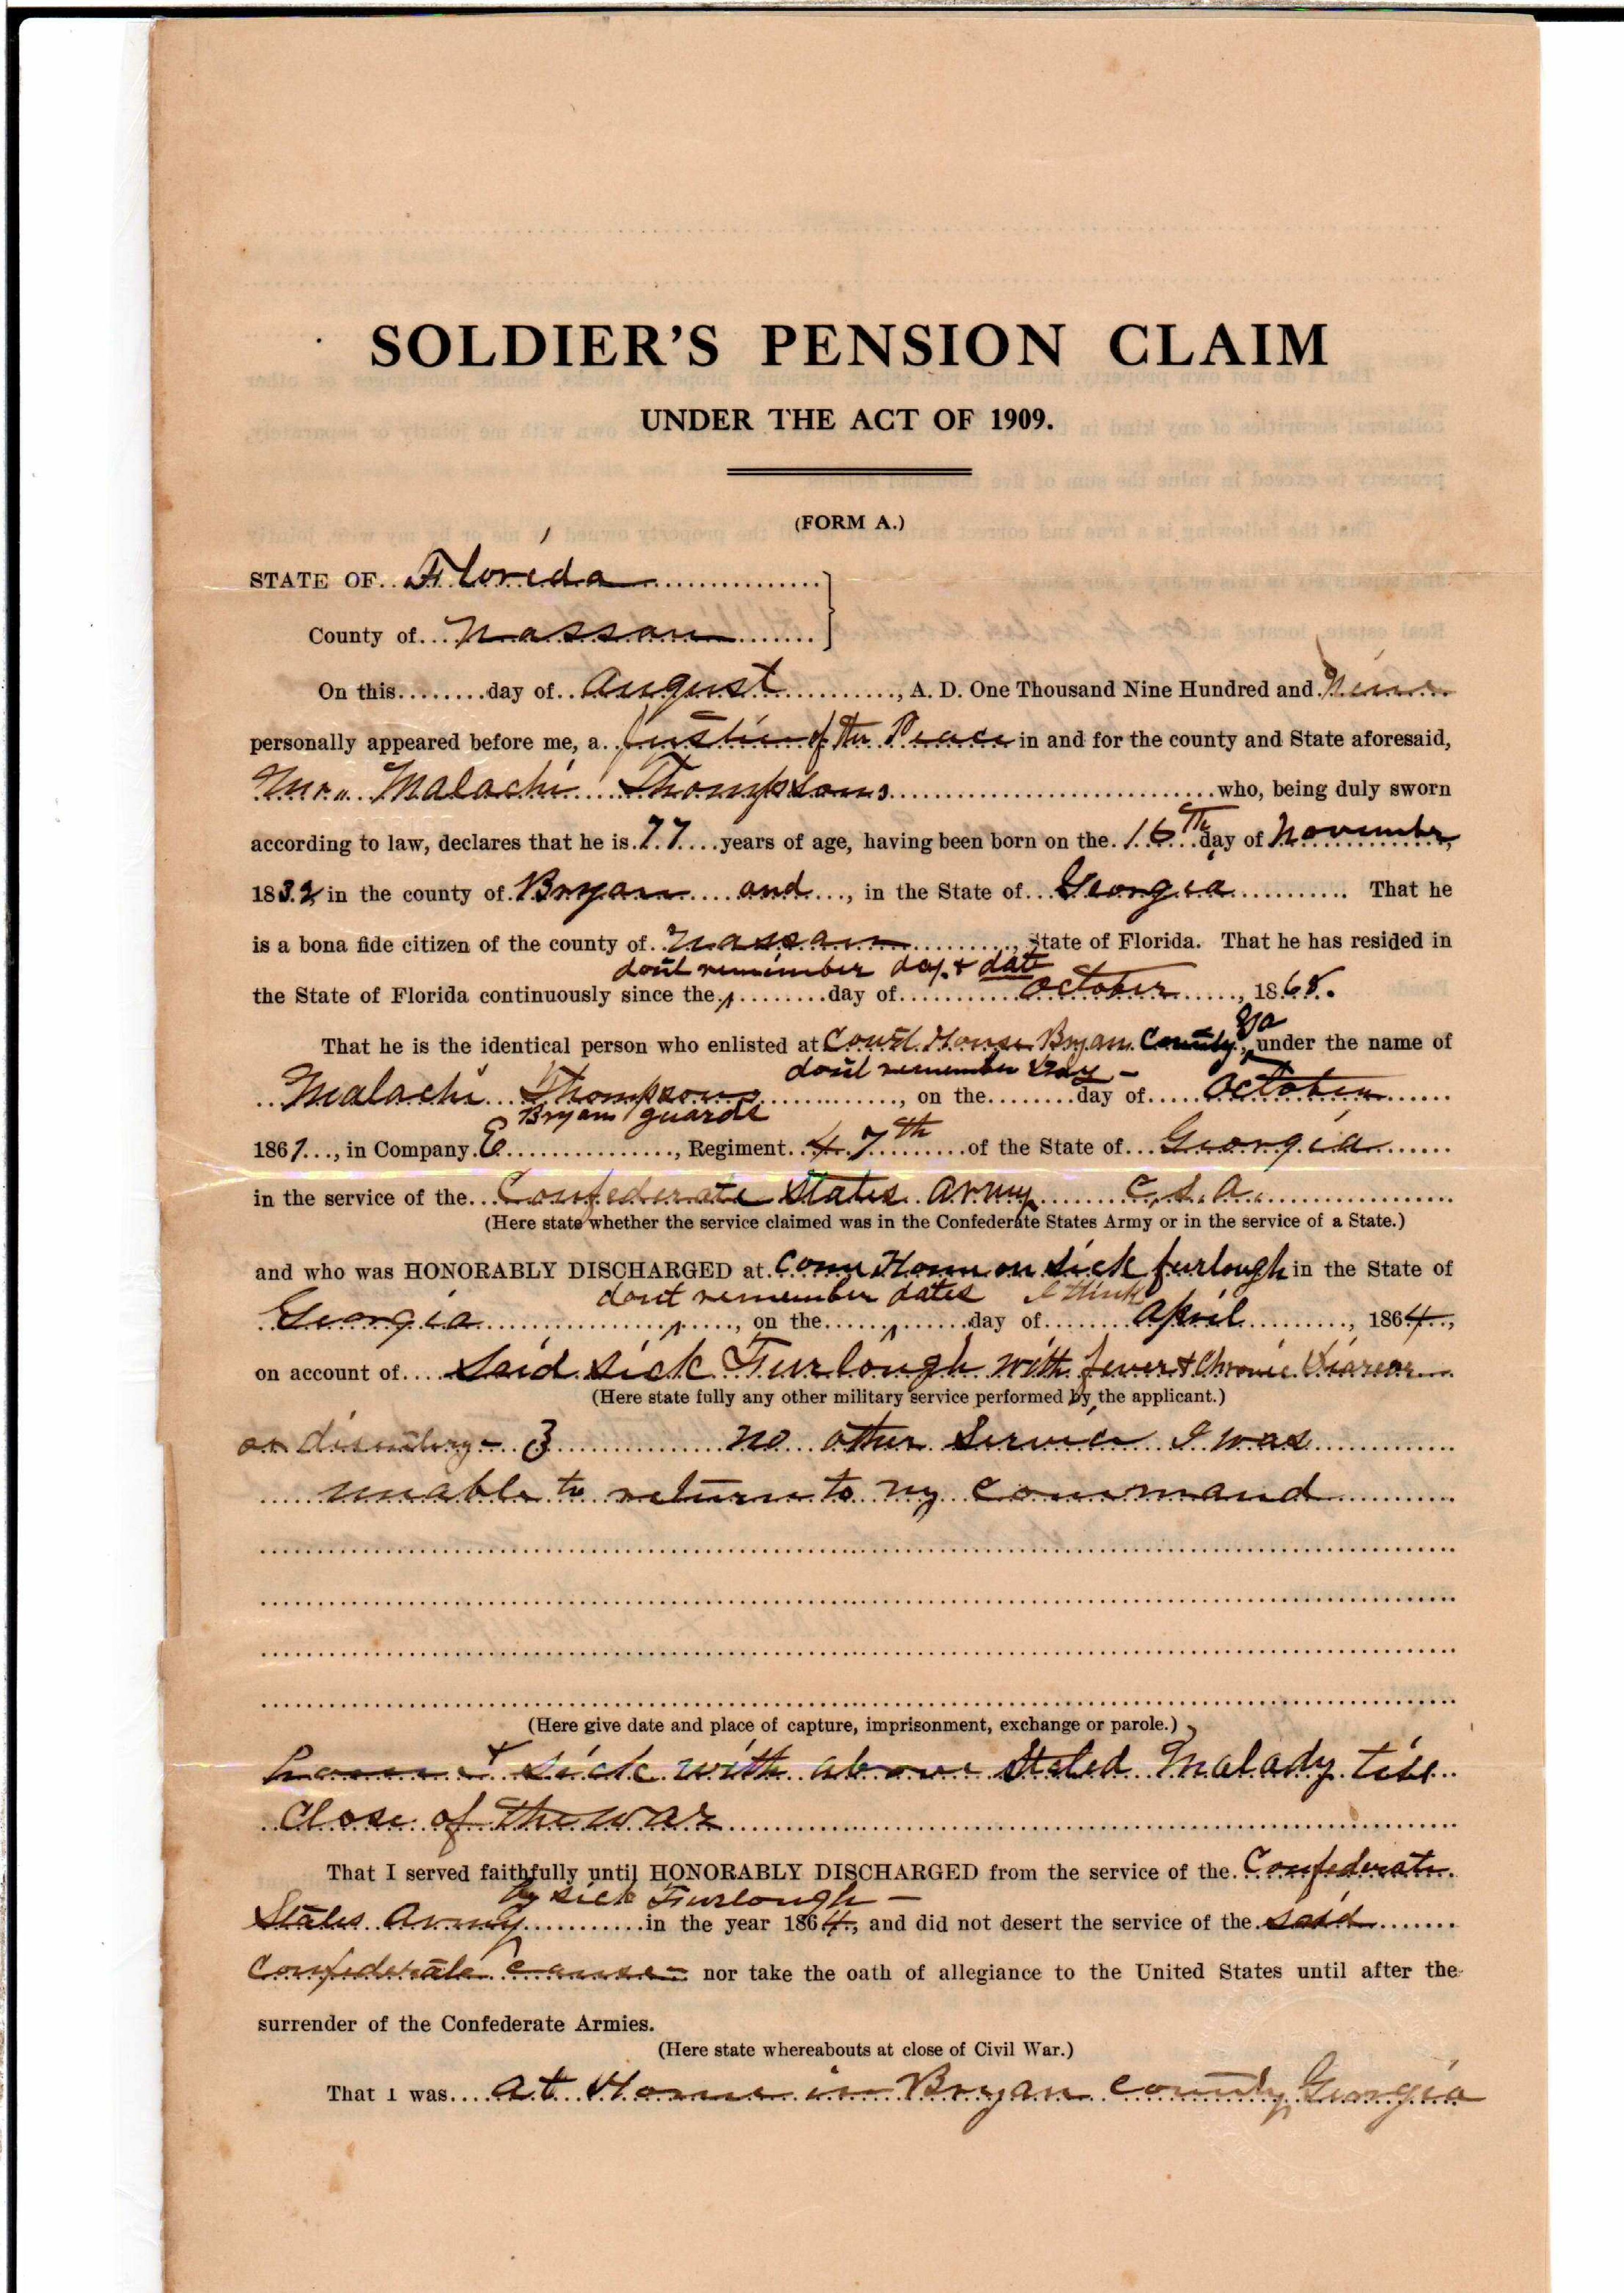 SOLDIER'S PENSION CLAIM
UNDER THE ACT OF 1909.
(FORM A.)
STATE OF Florida
County of Nassau
On this ........ day of August ........, A. D. One Thousand Nine Hundred and Nine
personally appeared before me, a Justice of the Peace in and for the county and State aforesaid,
Mr. Malachi Thompson who, being duly sworn
according to law, declares that he is 77 years of age, having been born on the 16th day of November,
1832 in the county of Bryan and, in the State of Georgia. That he
is a bona fide citizen of the county of Nassau, State of Florida. That he has resided in
dont remember day & date
the State of Florida continuously since the ........ day of October, 1868.
Ga
That he is the identical person who enlisted at Court House Bryan County, under the name of
dont remember day -
Malachi Thompson, on the ........ day of October
Bryan guards
1861, in Company E, Regiment 47th of the State of Georgia
in the service of the Confederate States Army C.S.A.
(Here state whether the service claimed was in the Confederate States Army or in the service of a State.)
and who was HONORABLY DISCHARGED at Come Home on sick furlough in the State of
dont remember dates I think
Georgia, on the ........ day of April, 1864,
on account of Said sick Furlough with fever & Chronic
(Here state fully any other military service performed by the applicant.)
or no other Service I was
unable to return to my Command
(Here give date and place of capture, imprisonment, exchange or parole.)
home & sick with above Stated Malady till
Close of the war
That I served faithfully until HONORABLY DISCHARGED from the service of the Confederate
by sick Furlough -
States Army in the year 1864, and did not desert the service of the said
Confederate cause - nor take the oath of allegiance to the United States until after the
surrender of the Confederate Armies.
(Here state whereabouts at close of Civil War.)
That I was at Home in Bryan County, Georgia